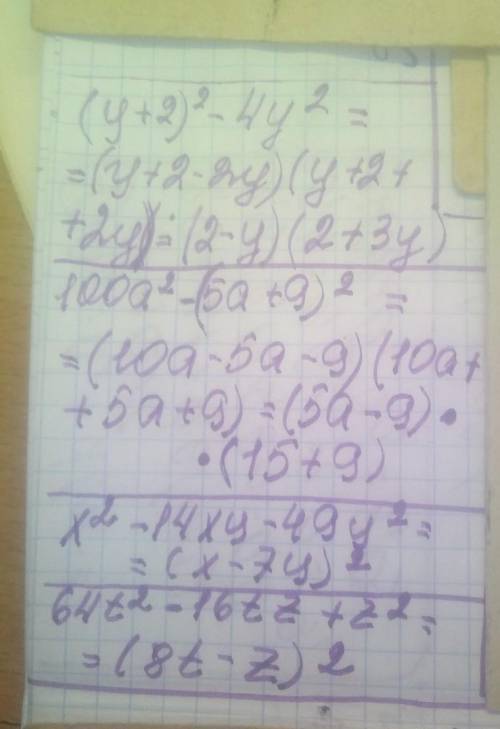 (y+2)² - 4y² =
=(y+2-2y)(y+2+
+2y)=(2-y)(2+3y)
100a² -(5a+9)² =
=(10a-5a-9)(10a+
+5a+9)=(5a-9)•
•(15+9)
x² -14xy-49y² =
=(x-7y)2
64t² -16tz+z² =
=(8t-z)2